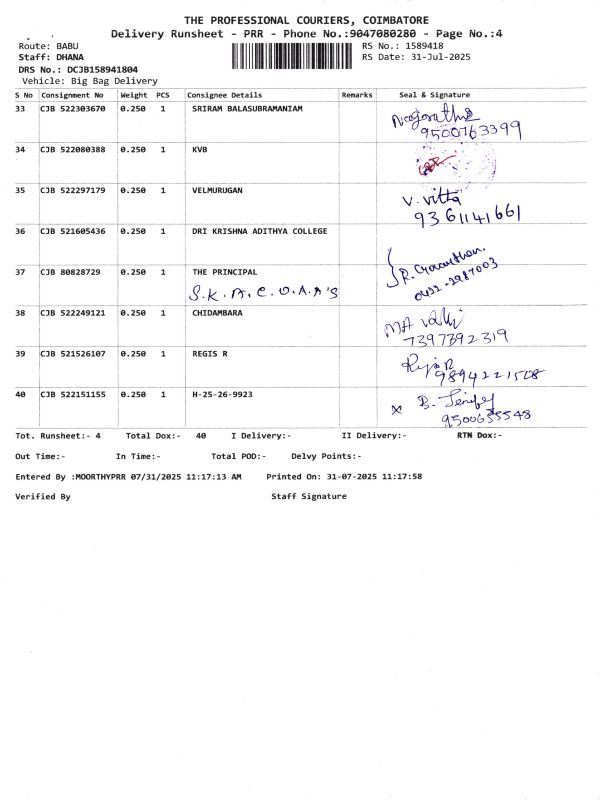 THE PROFESSIONAL COURIERS, COIMBATORE
Delivery Runsheet - PRR - Phone No.:9047080280 - Page No.:4
Route: BABU RS No.: 1589418
Staff: DHANA RS Date: 31-Jul-2025
DRS No.: DCJB158941804
Vehicle: Big Bag Delivery
S No Consignment No Weight PCS Consignee Details Remarks Seal & Signature
33 CJB 522303670 0.250 1 SRIRAM BALASUBRAMANIAM
9500763399
34 CJB 522080388 0.250 1 KVB
35 CJB 522297179 0.250 1 VELMURUGAN V. Vitta
9361141661
36 CJB 521605436 0.250 1 DRI KRISHNA ADITHYA COLLEGE
37 CJB 80828729 0.250 1 THE PRINCIPAL
S.K.A.C.O.A.A'S 0422-2987003
38 CJB 522249121 0.250 1 CHIDAMBARA
7397392319
39 CJB 521526107 0.250 1 REGIS R
9894221508
40 CJB 522151155 0.250 1 H-25-26-9923 B. Jenifer
9500635548
Tot. Runsheet:- 4 Total Dox:- 40 I Delivery:- II Delivery:- RTN Dox:-
Out Time:- In Time:- Total POD:- Delvy Points:-
Entered By :MOORTHYPRR 07/31/2025 11:17:13 AM Printed On: 31-07-2025 11:17:58
Verified By Staff Signature